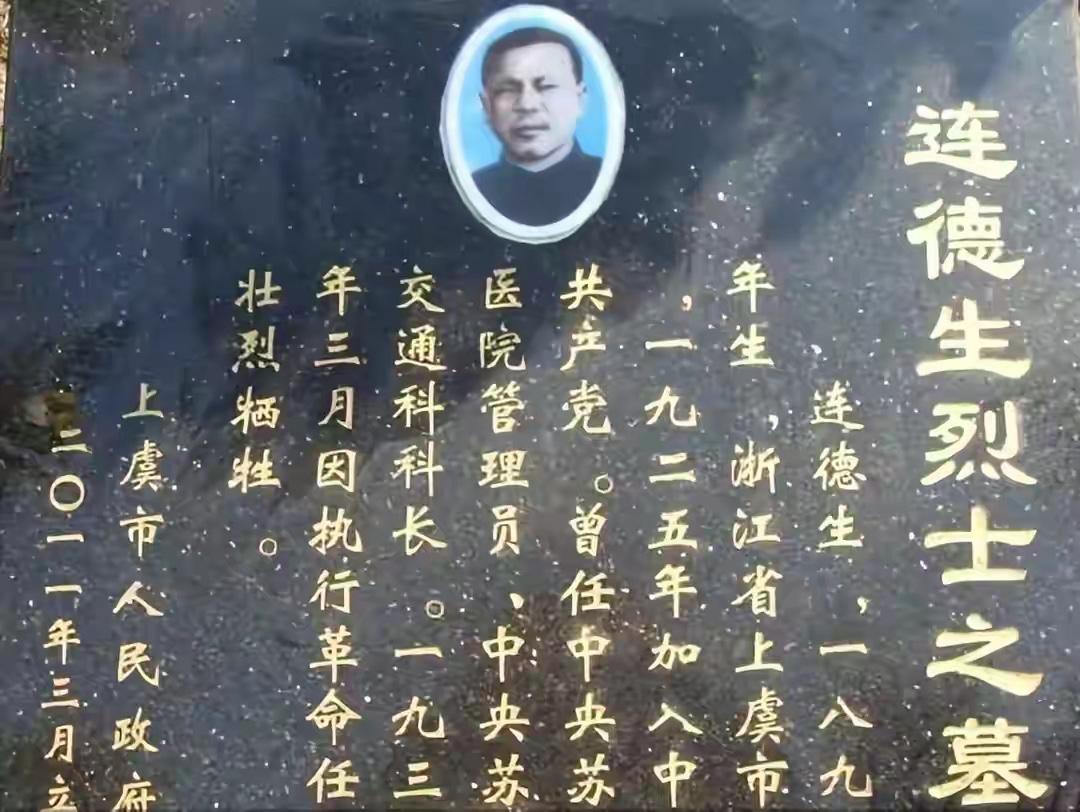 连德生烈士之墓
连德生，一八九
年生，浙江省上虞市
，一九二五年加入中
共产党。曾任中央苏
医院管理员、中央苏
交通科科长。一九三
年三月因执行革命任
壮烈牺牲。
上虞市人民政府
二〇一一年三月立